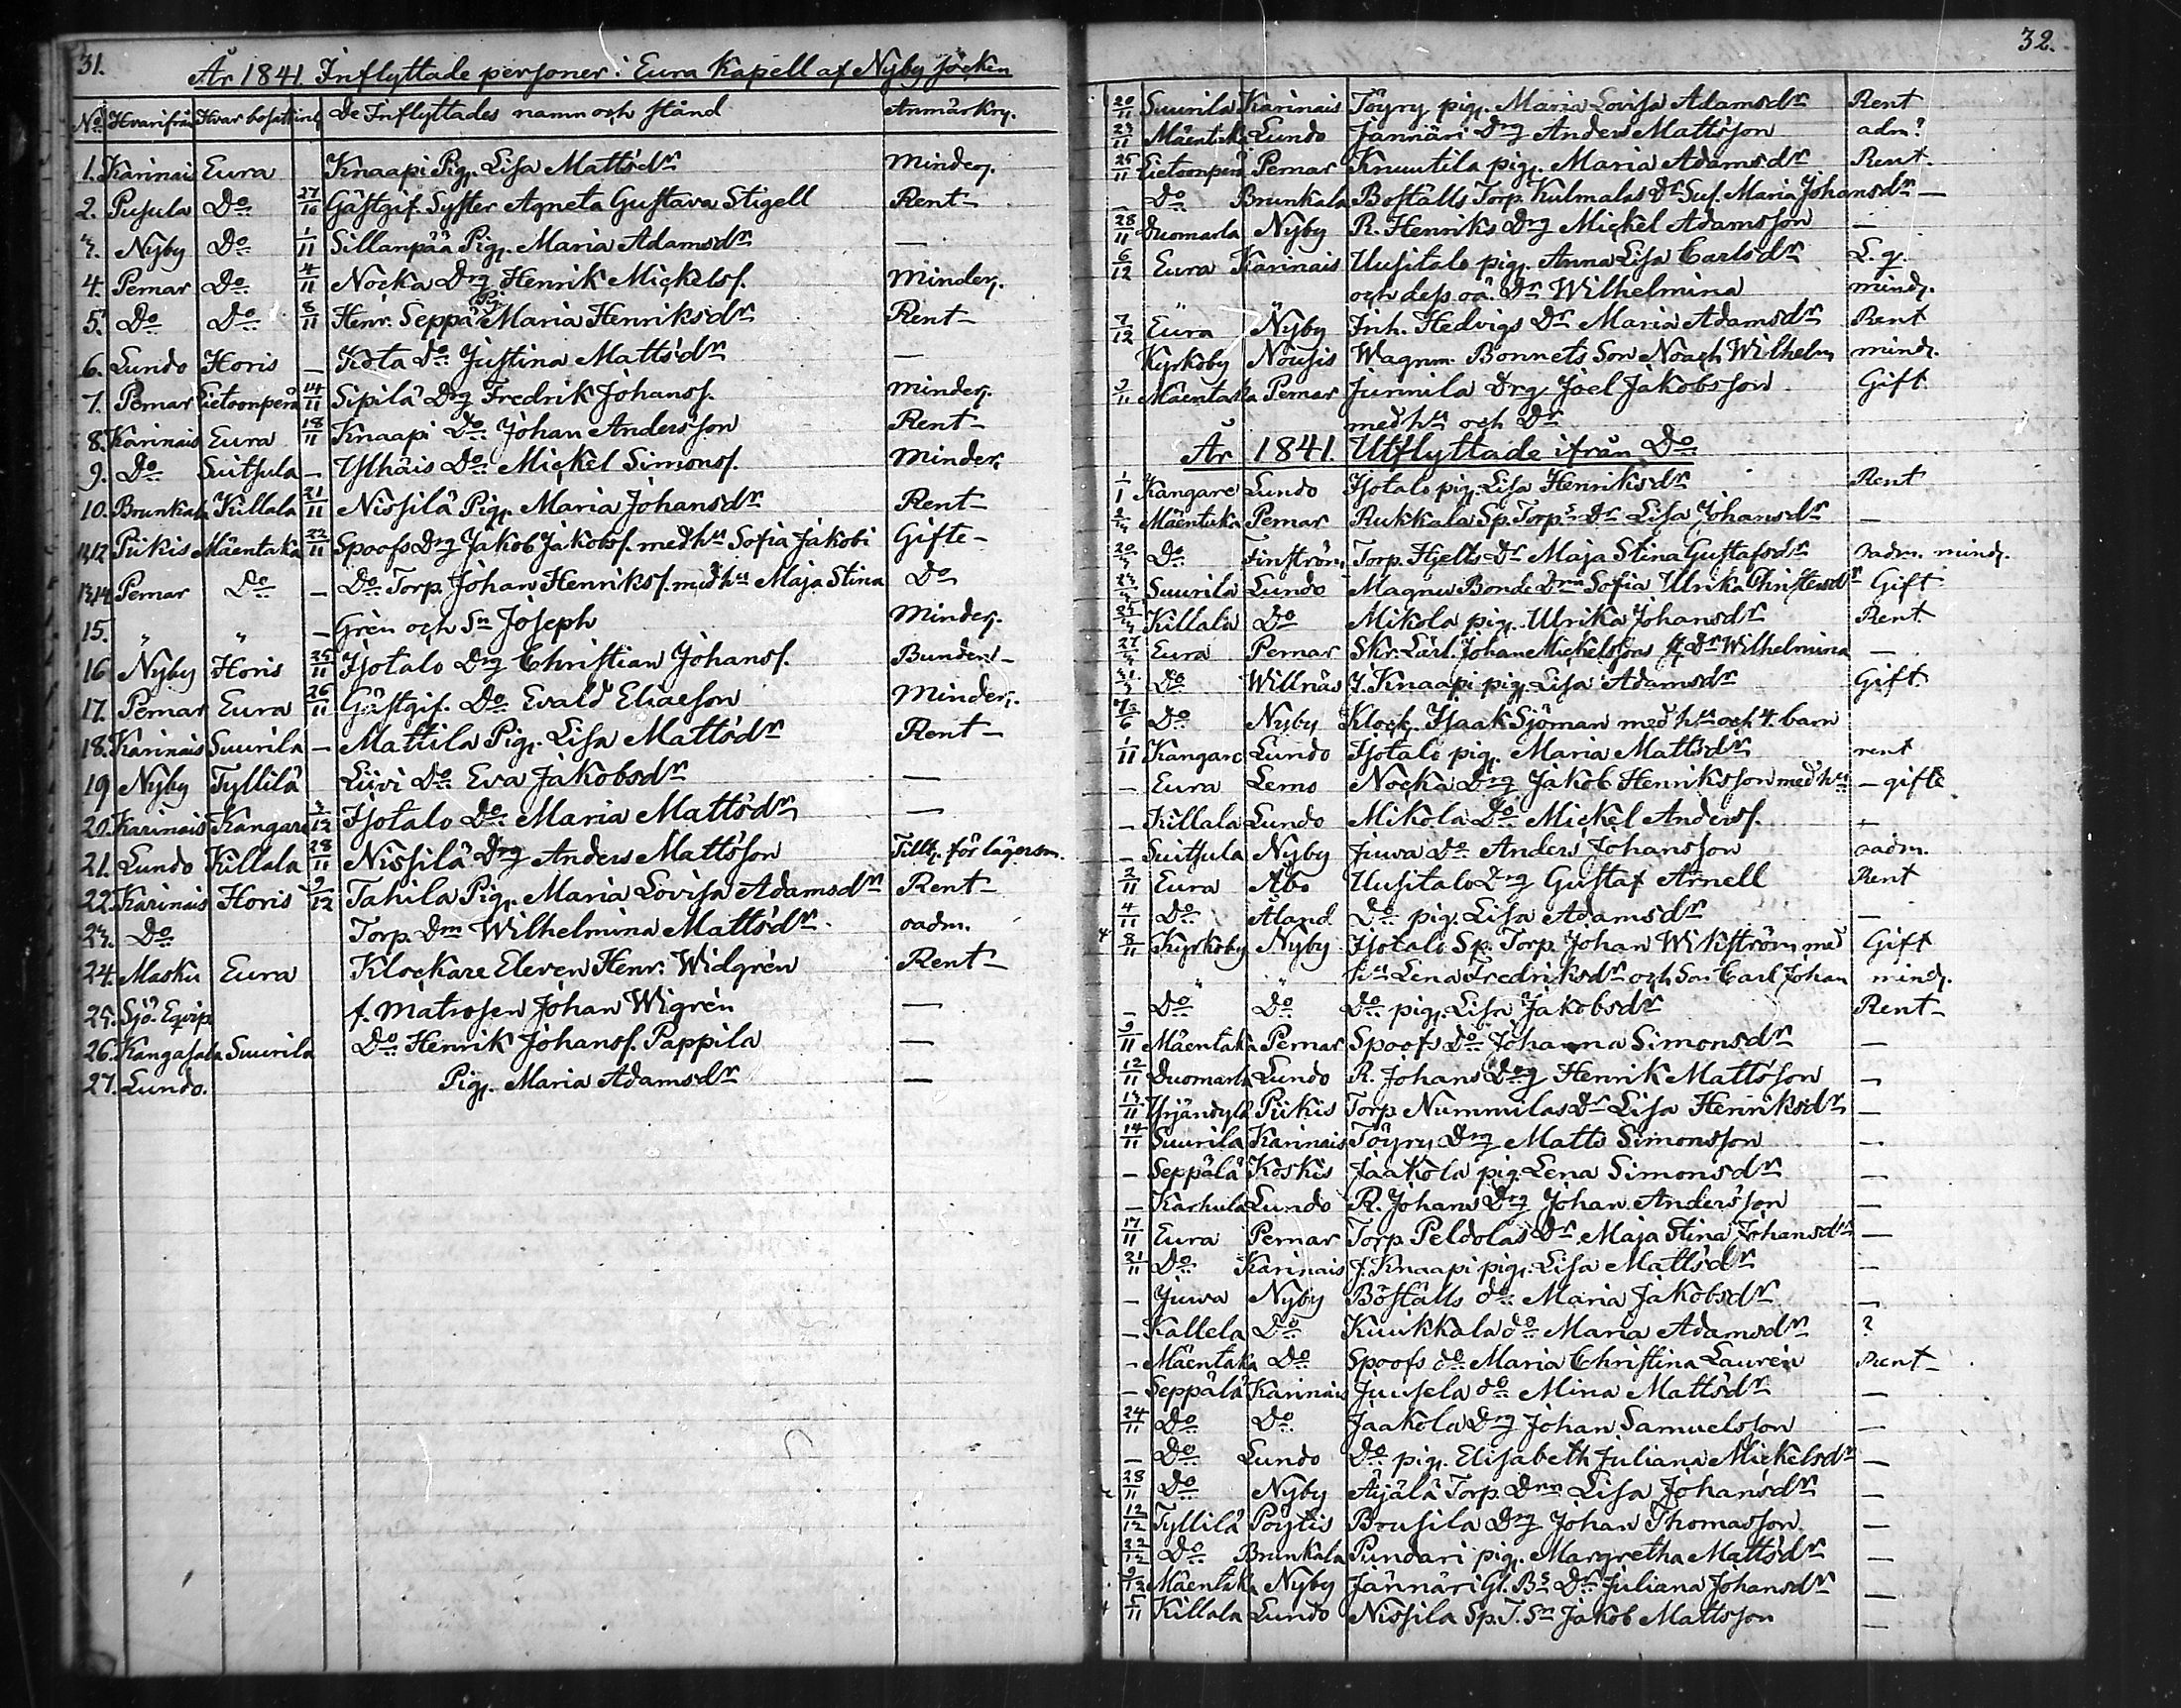 31.
År 1841. Inflyttade personer i Eura Kapell af Nyby socken
No Hvarifrån Hvar bosatt infl De Inflyttades namn och stånd Anmärkn.
1. Karinais Eura Knaapi Pig. Lisa Mattsdr Minderj.
2. Pusula Do 27/10 Gästgif. Syster Agneta Gustava Stigell Rent –
3. Nyby Do 1/11 Sillanpää Pig. Maria Adamsdr —
4. Pemar Do 4/11 Nocka Drg Henrik Mickelss. Minderj.
5. Do Do 8/11 Henr. Seppä Pig Maria Henriksdr Rent –
6. Lundo Horis – Kota Do Justina Mattsdr —
7. Pemar Lietoonperä 14/11 Sipilä Drg Fredrik Johanss. Minderj.
8. Karinais Eura 18/11 Knaapi Do Johan Andersson Rent –
9. Do Suitsula – Ylhäis Do Mickel Simonss. Minder.
10. Brunkala Killala 21/11 Nissilä Pig. Maria Johansdr Rent –
11,12 Piikis Mäentaka 22/11 Spoofs Drg Jakob Jakobss. med hu Sofia Jakobi Gifte –
13,14 Pemar Do – Do Torp. Johan Henrikss. med hu Maja Stina Do
15. " " – Grén och Sn Joseph Minderj.
16 Nyby Horis 25/11 Isotalo Drg Christian Johanss. Bunden –
17. Pemar Eura 26/11 Gästgif. Do Evald Eliaeson Minder.
18. Karinais Suurila – Mattila Pig. Lisa Mattsdr Rent –
19 Nyby Tyllilä Liivi Do Eva Jakobsdr —
20. Karinais Kangare 3/12 Isotalo Do Maria Mattsdr —
21. Lundo Killala 28/11 Nissilä Drg Anders Mattsson Tillt. för lägersm.
22. Karinais Horis 9/12 Tahila Pig. Maria Lovisa Adamsdr Rent –
23. Do Torp. Dm Wilhelmina Mattsdr oadm.
24. Masku Eura Klockare Eleven Henr. Widgrén Rent –
25. Sjö. Eqvip f. Matrosen Johan Wigrén —
26. Kangasala Suurila Do Henrik Johanss. Pappila —
27. Lundo. Pig. Maria Adamsdr —
32.
20/11 Suurila Karinais Töyry pig. Maria Lovisa Adamsdr Rent
23/11 Mäentaka Lundo Jannäri Drg Anders Mattsson adm?
25/11 Lietoonperä Pemar Knuutila pig. Maria Adamsdr Rent.
– Do Brunkala Boställs Torp. Kulmalas Dr Sus. Maria Johansdr —
28/11 Duomarla Nyby R. Henriks Drg Mickel Adamsson —
6/12 Eura Karinais Uusitalo pig. Anna Lisa Carlsdr L. q.
och dess oä. Dr Wilhelmina mindj.
7/12 Eura Nyby Inh. Hedvigs Dr Maria Adamsdr Rent
Kyrkoby Nousis Wagnm. Bonnets Son Noach Wilhelm mindj.
9/11 Mäentaka Pemar Junnila Drg Joel Jakobsson Gift
med hu och Dr
År 1841. Utflyttade ifrån Do
1/1 Kangare Lundo Isotalo pig. Lisa Henriksdr Rent
Mäentaka Pemar Rukkala Sp. Torps Dr Lisa Johansdr —
Do Finström Torp. Hjelts Dr Maja Stina Gustafsdr oadm. mindj.
Suurila Lundo Magnu Bonde Drn Sofia Ulrika Christersdr Gift
Killala Do Mikola pig. Ulrika Johansdr Rent
Eura Pemar Skr. Lärl. Johan Mickelssons Dr Wilhelmina —
Do Willnäs Y. Knaapi pig. Lisa Adamsdr Gift
Do Nyby Klock. Isaak Sjöman med hu och 4. barn
1/11 Kangare Lundo Isotalo pig. Maria Mattsdr rent
– Eura Lemo Nocka Drg Jakob Henriksson med hu – gifte
– Killala Lundo Mikola Do Mickel Anderss. –
– Suitsula Nyby Juwa Do Anders Johansson oadm.
2/11 Eura Åbo Uusitalo Drg Gustaf Arnell Rent
4/11 Do Åland Do pig. Lisa Adamsdr —
8/11 Kyrkoby Nyby Isotalo Sp. Torp. Johan Wikström med Gift
" " hu Lena Fredriksdr och Son Carl Johan mindj.
– Do Do Do pig. Lisa Jakobsdr Rent –
9/11 Mäentaka Pemar Spoofs Do Johanna Simonsdr —
12/11 Duomarla Lundo R. Johans Drg Henrik Mattsson —
13/11 Yrjänäylä Piikis Torp. Nummilas Dr Lisa Henriksdr —
14/11 Suurila Karinais Töyry Drg Matts Simonsson —
– Seppälä Koskis Jaakola pig. Lena Simonsdr —
– Karhula Lundo R. Johans Drg Johan Andersson —
17/11 Eura Pemar Torp. Peldolas Dr Maja Stina Johansdr —
21/11 Do Karinais J. Knaapi pig. Lisa Mattsdr —
– Juwa Nyby Boställs do Maria Jakobsdr —
– Kallela Do Kuukkala do Maria Adamsdr ?
– Mäentaka Do Spoofs do Maria Christina Laurén Rent –
– Seppälä Karinais Juusela do Mina Mattsdr —
24/11 Do Do Jaakola Drg Johan Samuelsson —
– Do Lundo Do pig. Elisabeth Juliana Mickelsdr —
28/11 Do Nyby Äijälä Torp. Drn Lisa Johansdr —
12/12 Tyllilä Pöytis Brusila Drg Johan Thomasson —
22/12 Do Brunkala Pundari pig. Margretha Mattsdr —
9/12 Mäentaka Nyby Jännäri Gl. Bs Dr Juliana Johansdr —
5/11 Killala Lundo Nissila Sp. T. Sn Jakob Mattsson —